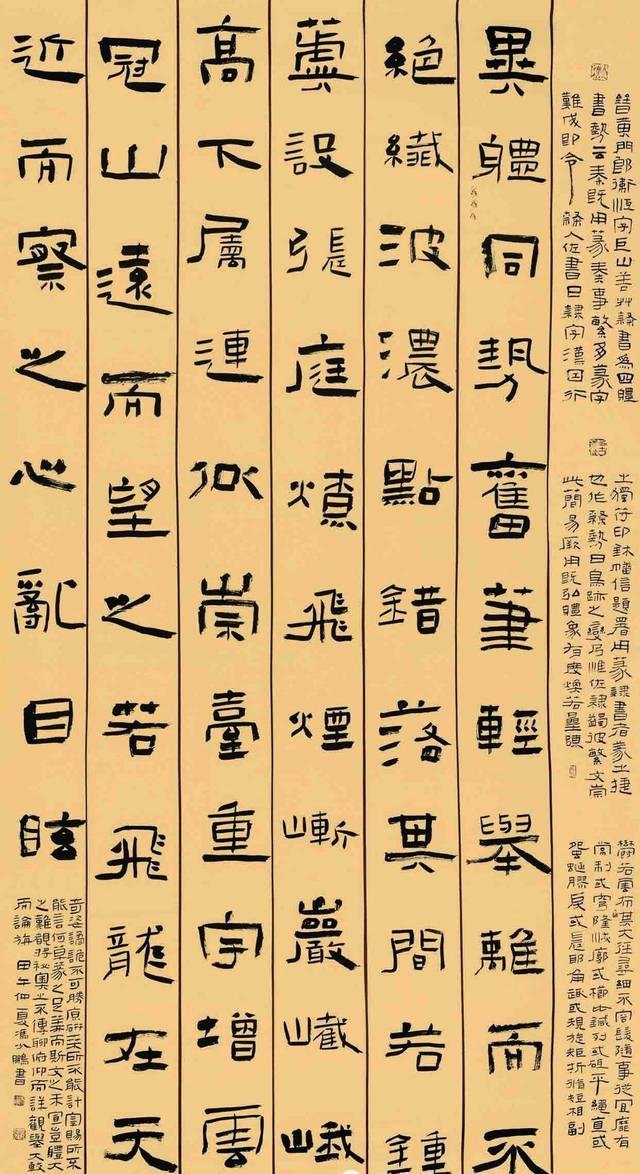 晉黃門郎衛恒字巨山善艸隸書為四體
書勢云秦既用篆奏事繁多篆字
難成即令隸人佐書曰隸字漢因行
之獨符印鉥幡信題署用篆隸書者篆之捷
也作隸勢曰鳥跡之變乃惟佐隸蠲彼繁文崇
此簡易厥用既弘體象有度煥若星陳
鬱若雲布其大徑尋細不容髮隨事從宜靡有
常制或穹隆恢廓或櫛比鍼列或砥平繩直或
蜿蜒膠戾或長邪角趣或規旋矩折脩短相副
異體同勢奮筆輕舉離而不
絕纖波濃點錯落其間若鍾
簴設張庭燎飛煙嶄巖嶻峨
高下屬連似崇臺重宇增雲
冠山遠而望之若飛龍在天
近而察之心亂目眩
奇姿譎詭不可勝原研桑所不能計宰賜所不
能言何草篆之足算而斯文之未宣豈體大
之難覩將秘奧之不傳聊俯仰而詳觀舉大較
而論旃 甲午仲夏馮小鵬書